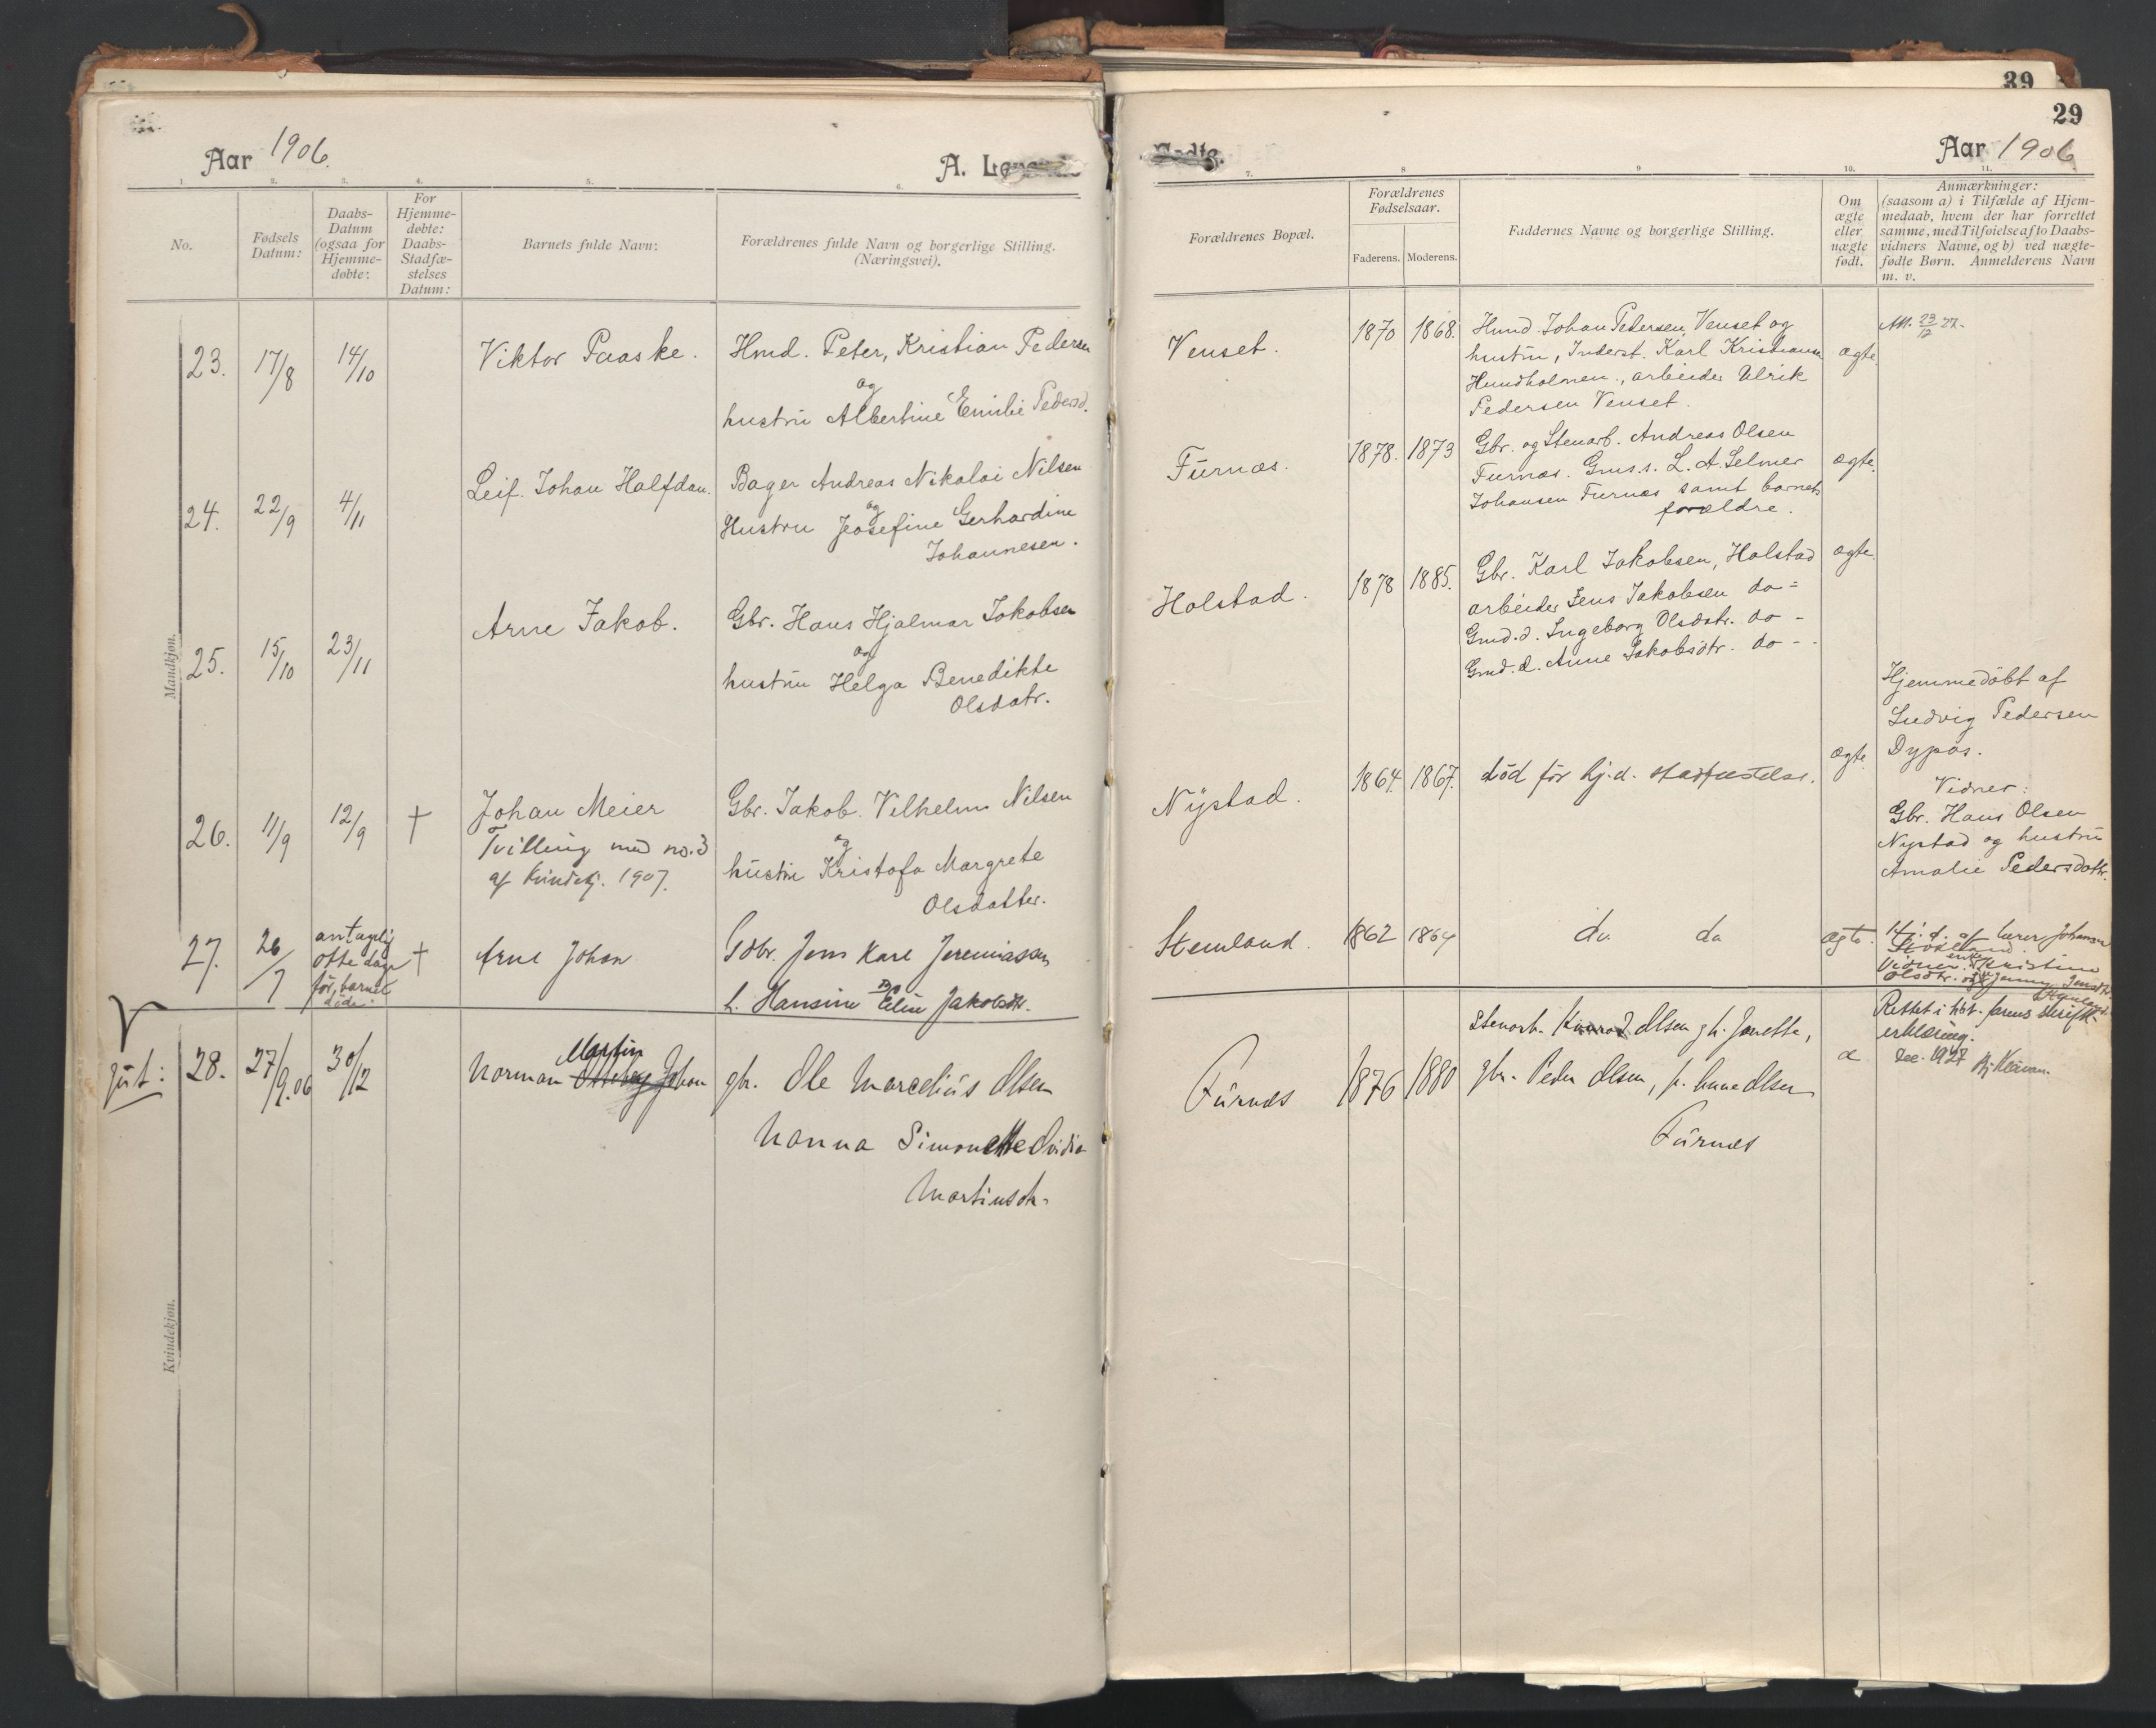 39
29
Aar 1906.
A.
Aar 1906
1. 2. 3. 4. 5. 6. 7. 8 9 10. 11.
No.
Fødsels Datum:
Daabs-Datum (ogsaa for Hjemme-døbte:
For Hjemme-døbte: Daabs-Stadfæ-stelses Datum:
Barnets fulde Navn:
Forældrenes fulde Navn og borgerlige Stilling. (Næringsvei).
Forældrenes Bopæl.
Forældrenes Fødselsaar.
Faderens. Moderens.
Faddernes Navne og borgerlige Stilling.
Om ægte eller uægte født.
Anmærkninger:
(saasom a) i Tilfælde af Hjem-
medaab, hvem der har forrettet
samme, med Tilføielse af to Daabs-
vidners Navne, og b) ved uægte-
fødte Børn. Anmelderens Navn
m. v.
Mandkjøn.
23. 17/8 14/10 Viktor Paaske.
Hmd. Peter, Kristian Pedersen
og
hustru Albertine Emilie Pedersd.
Venset. 1870 1868.
Husmd. Johan Pedersen, Venset og
hustru, Inderst. Karl Kristiansen
Hundholmen., arbeider Ulrik
Pedersen Venset.
ægte.
Att. 23/12 27.
24. 22/9 4/11 Leif. Johan Halfdan.
Bager Andreas Nikolai Nilsen
og
Hustru Josefine Gerhardine
Johannesen.
Furnæs. 1878. 1873
Gbr. og Stenarb. Andreas Olsen
Furnæs. Gms. s. L. A. Selmer
Johansen Furnæs samt barnets
forældre.
ægte.
25. 15/10 23/11 Arne Jakob.
Gbr. Hans Hjalmar Jakobsen
og
hustru Helga Benedikte
Olsdatr.
Halstad. 1878 1885.
Gbr. Karl Jakobsen, Halstad
arbeider Jens Jakobsen do =
Gmd. d. Ingeborg Olsdatr. do -
Gmd. d. Anne Jakobsdtr. do - -
ægte.
26. 11/9 12/9 † Johan Meier
Tvilling med no. 3
af Kvindekj. 1907.
Gbr. Jakob. Vilhelm Nilsen
og
hustru Kristofa Margrete
Olsdatter.
Nystad. 1864. 1867.
død før hj.d. stadfæstelse.
ægte
Hjemmedøbt af
Ludvig Pedersen
Dypås.
Vidner:
Gbr. Hans Olsen
Nystad og hustru
Amalie Pedersdatr.
27. 26/7
antagelig
otte dage
før, barnet
døde.
† Arne Johan
Gdbr. Jens Kare Jeremiassen
og
h. Hansine Elin Jakobsdtr.
Stemland. 1862 1864
do. do
ægte.
Hj. d. af lærer Johansen
Vidner: enke Kristine
Olsdtr. og Jenny Jensdtr.
Stemland.
jut:
28. 27/9.06 30/12
Martin
Norman Johan
gbr. Ole Marcelius Olsen
Nanna Simonette Ovidia
Martinsdtr.
Furnæs 1876 1880
Stenarb. Konrad Olsen g h. Janette,
gbr. Peder Olsen, p. Anne Olsen
Furnæs
æ
Rettet i hht. farens skriftl.
erklæring.
Dec. 1927
Kvindekjøn.